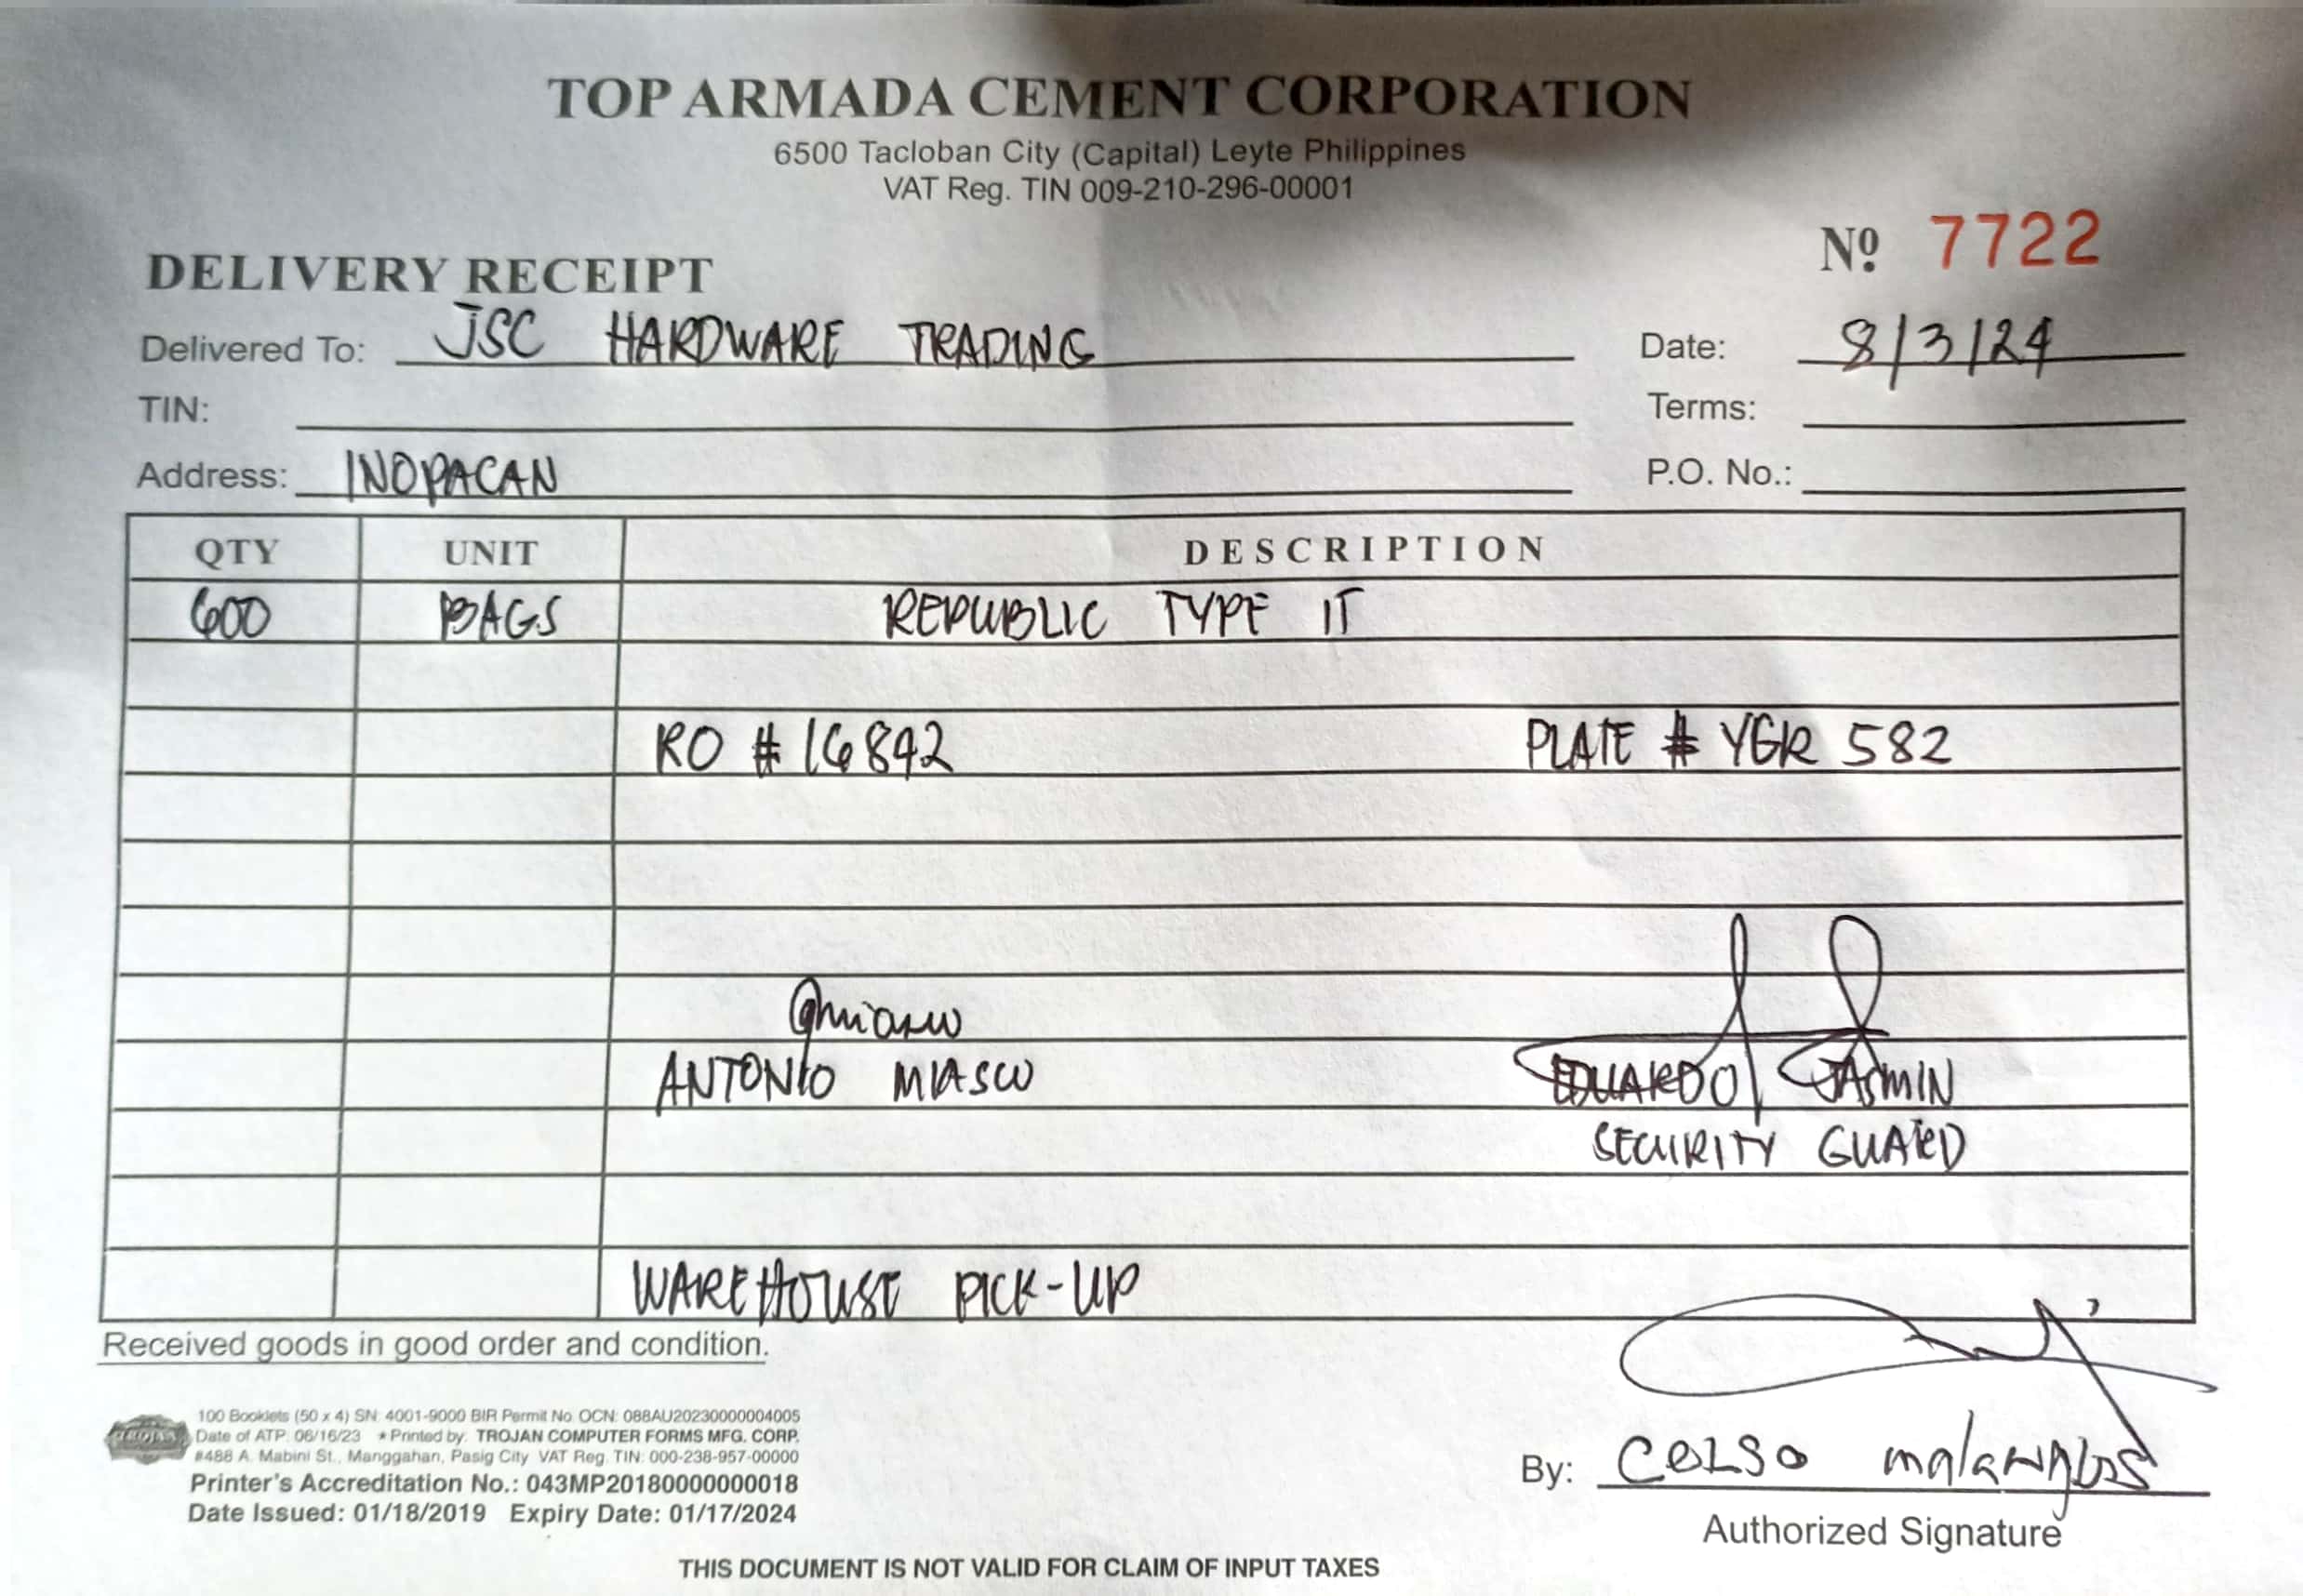 TOP ARMADA CEMENT CORPORATION
6500 Tacloban City (Capital) Leyte Philippines
VAT Reg. TIN 009-210-296-00001
Nº 7722
DELIVERY RECEIPT
Delivered To: JSC HARDWARE TRADING Date: 8/3/24
TIN: Terms:
Address: INOPACAN P.O. No.:
QTY UNIT DESCRIPTION
600 BAGS REPUBLIC TYPE 1T
RO # 16842 PLATE # YGR 582
ANTONIO MIASCO EDUARDO JASMIN
SECURITY GUARD
WAREHOUSE PICK-UP
Received goods in good order and condition.
100 Booklets (50 x 4) SN: 4001-9000 BIR Permit No. OCN: 088AU20230000004005
Date of ATP: 06/16/23 * Printed by: TROJAN COMPUTER FORMS MFG. CORP.
#488 A. Mabini St., Manggahan, Pasig City VAT Reg. TIN: 000-238-957-00000
Printer's Accreditation No.: 043MP20180000000018
Date Issued: 01/18/2019 Expiry Date: 01/17/2024
By: CELSO
Authorized Signature
THIS DOCUMENT IS NOT VALID FOR CLAIM OF INPUT TAXES